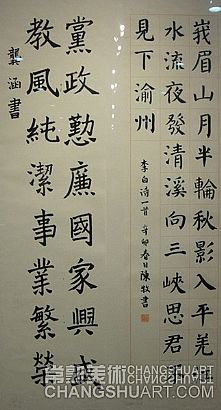 峩眉山月半輪秋影入平羌江
水流夜發清溪向三峽思君不
見下渝州
李白诗一首 辛卯春日陳牧書
黨政懃廉國家興盛
教風純潔事業繁榮
龔涵書
常熟美術